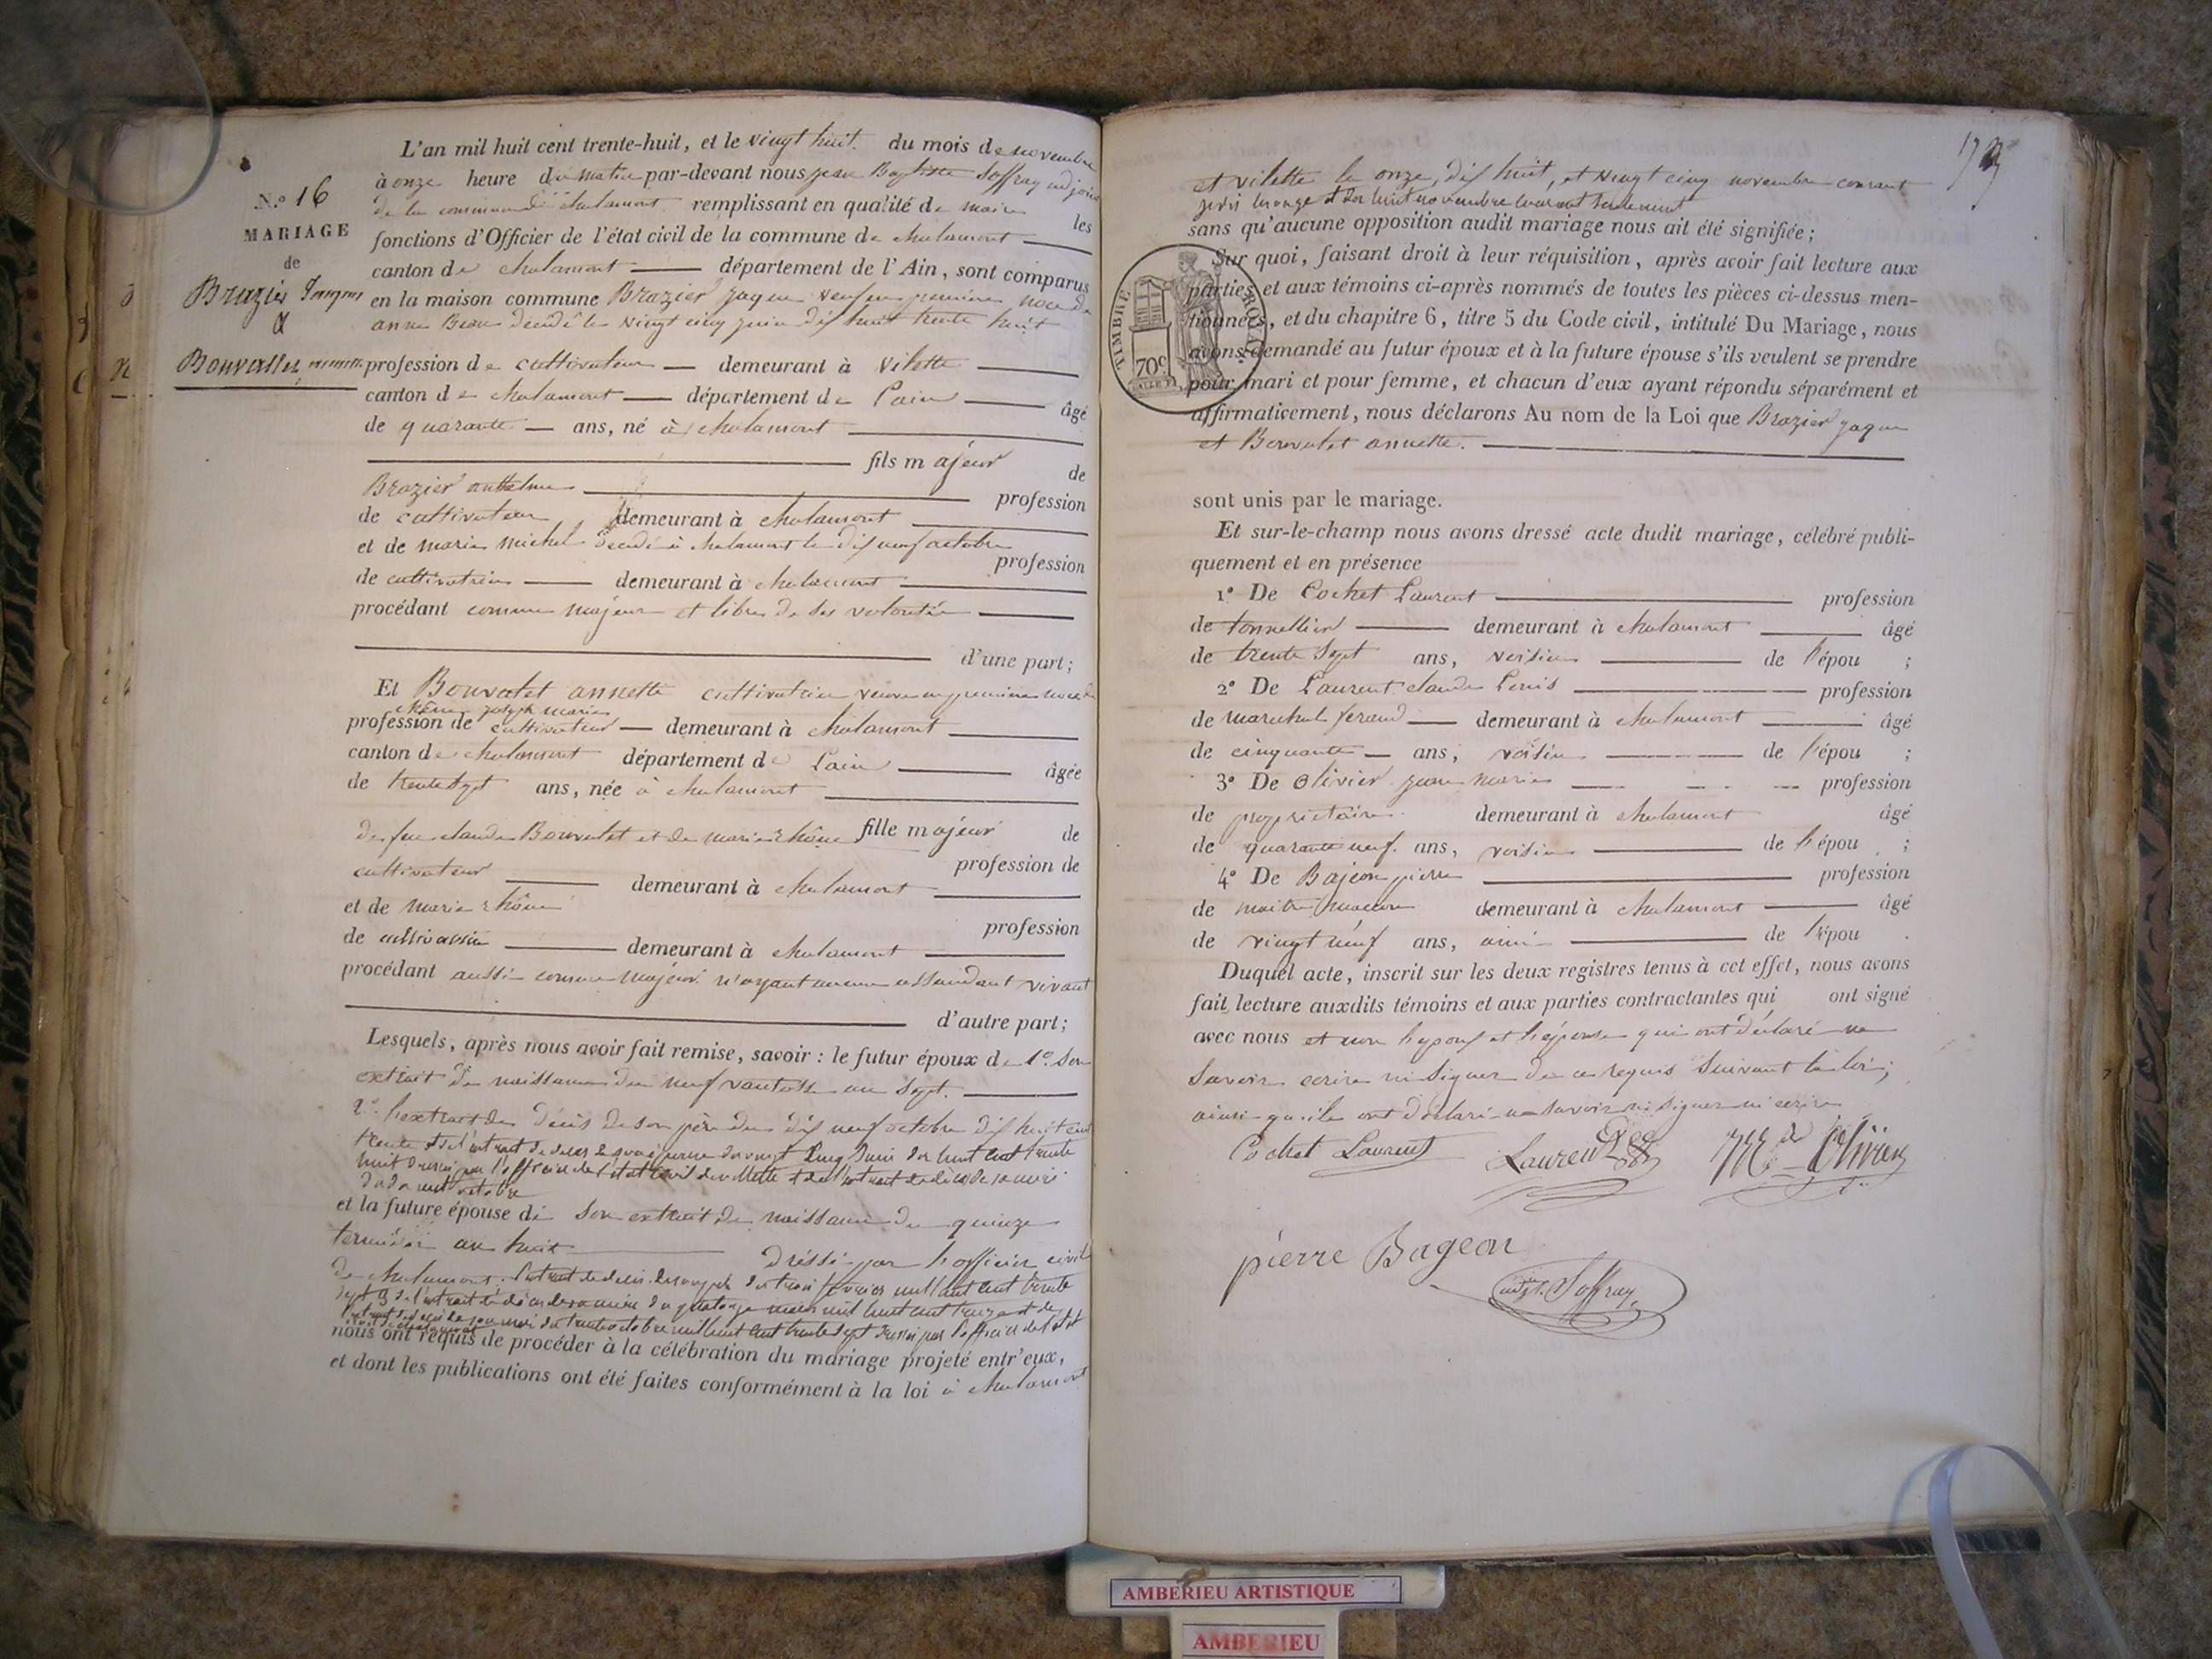 N.º 16
MARIAGE
de
Brazier Jacques
&
Bouvallet annette
L'an mil huit cent trente-huit, et le vingt huit du mois de novembre
à onze heure du matin par-devant nous jean Baptiste Soffray adjoint
de la commune de chalamont remplissant en qualité de maire les
fonctions d'Officier de l'état civil de la commune de chalamont
canton de chalamont département de l'Ain, sont comparus
en la maison commune Brazier jaque veuf en première noce de
anne décédé le vingt cinq juin dix huit trente huit
profession de cultivateur demeurant à vilette
canton de chalamont département de Lain âgé
de quarante ans, né à chalamont
fils majeur de
Brazier anthelme profession
de cultivateur demeurant à chalamont
et de marie michel décédé à chalamont le dix neuf octobre
profession
de cultivatrice demeurant à chalamont
procédant comme majeur et libre de ses volontés
d'une part;
Et Bouvalet annette cultivatrice veuve en première noce de
joseph marie
profession de cultivateur demeurant à chalamont
canton de chalamont département de Lain âgée
de trente sept ans, née à chalamont
de feu claude Bouvalet et de marie rhône fille majeur de
cultivateur profession de
demeurant à chalamont
et de marie rhône
profession
de cultivatrice demeurant à chalamont
procédant aussi comme majeur n'ayant aucun assendant vivant
d'autre part;
Lesquels, après nous avoir fait remise, savoir : le futur époux de 1º. Son
extrait de naissance du neuf vantose an sept.
2º. l'extrait de décès de son père du dix neuf octobre dix huit cent
trente et de l'extrait de décès de du vingt cinq juin dix huit cent trente
huit dressé par l'officier de l'état civil de villette et de l'extrait de décès de sa mère
du dix neuf octobre
et la future épouse de son extrait de naissance du quinze
termidor an huit dréssé par l'officier civil
de chalamont. l'extrait de décès de son père du trois février mil huit cent trente
sept & de l'extrait de décès de sa mère du quatorze mars mil huit cent treize et de
l'extrait de décès de son mari du trente octobre mil huit cent trente sept dressé par l'officier de l'état
nous ont requis de procéder à la célébration du mariage projeté entr'eux,
et dont les publications ont été faites conformément à la loi à chalamont
et vilette le onze, dix huit, et vingt cinq novembre courant
onze et dix huit novembre courant seulement
sans qu'aucune opposition audit mariage nous ait été signifiée;
Sur quoi, faisant droit à leur réquisition, après avoir fait lecture aux
parties et aux témoins ci-après nommés de toutes les pièces ci-dessus men-
tionnées, et du chapitre 6, titre 5 du Code civil, intitulé Du Mariage, nous
avons demandé au futur époux et à la future épouse s'ils veulent se prendre
pour mari et pour femme, et chacun d'eux ayant répondu séparément et
affirmativement, nous déclarons Au nom de la Loi que Brazier jaque
et Bouvalet annette.
TIMBRE ROYAL
70c
sont unis par le mariage.
Et sur-le-champ nous avons dressé acte dudit mariage, célébré publi-
quement et en présence
1º De Cochet Laurent profession
de tonnellier demeurant à chalamont âgé
de trente sept ans, voisin de l'épou ;
2º De Laurent claude Louis profession
de marechal ferand demeurant à chalamont âgé
de cinquante ans, voisin de l'épou ;
3º De Olivier jean marie profession
de propriétaire demeurant à chalamont âgé
de quarante neuf ans, voisin de l'épou ;
4º De Bajeon pierre profession
de maitre maccon demeurant à chalamont âgé
de vingt neuf ans, ami de l'épou .
Duquel acte, inscrit sur les deux registres tenus à cet effet, nous avons
fait lecture auxdits témoins et aux parties contractantes qui ont signé
avec nous et non l'epoux et l'épouse qui ont déclaré ne
savoir ecrire ni signer de ce requis suivant la loi;
ainsi qu'ils ont déclaré ne savoir ni signer ni ecrire
Cochet Laurent Laurent Olivier
pierre Bageon
adjt. Soffray
AMBERIEU ARTISTIQUE
AMBERIEU